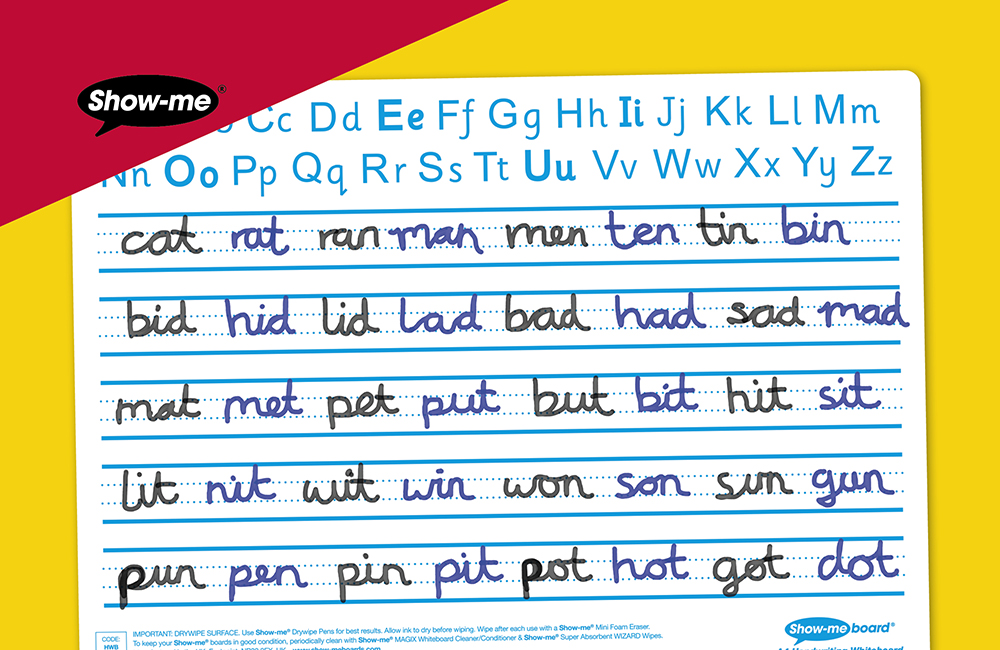 Show-me®
Cc Dd Ee Ff Gg Hh Ii Jj Kk Ll Mm
Nn Oo Pp Qq Rr Ss Tt Uu Vv Ww Xx Yy Zz
cat rat ran man men ten tin bin
bid hid lid Lad bad had sad mad
mat met pet put but bit hit sit
lit nit wit win won son sun gun
pun pen pin pit pot hot got dot
CODE:
HWB
IMPORTANT: DRYWIPE SURFACE. Use Show-me® Drywipe Pens for best results. Allow ink to dry before wiping. Wipe after each use with a Show-me® Mini Foam Eraser.
To keep your Show-me® boards in good condition, periodically clean with Show-me® MAGIX Whiteboard Cleaner/Conditioner & Show-me® Super Absorbent WIZARD Wipes.
www.show-meboards.com
Show-me board®
A4 Handwriting Whiteboard